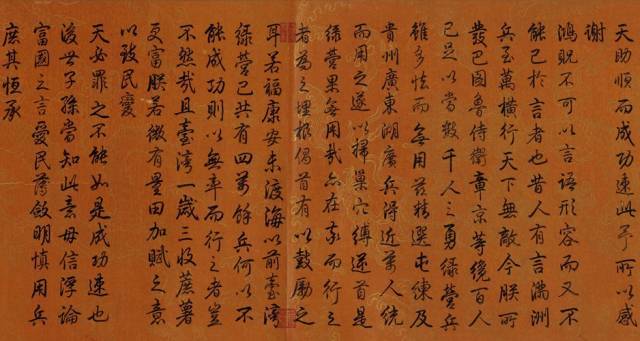 天助順而成功速此予所以感
謝
鴻貺不可以言語形容而又不
能已於言者也昔人有言滿洲
兵至萬橫行天下無敵今朕所
發巴圖魯侍衛章京等纔百人
已足以當數千人之勇綠營兵
雖多怯而無用茲精選屯練及
貴州廣東湖廣兵得近萬人統
而用之遂以掃巢穴縛逆首是
綠營果無用哉亦在彖而行之
者為之埋根倡首有以鼓勵之
耳若福康安未渡海以前臺灣
綠營已共有四萬餘兵何以不
能成功則以無率而行之者豈
不然哉且臺灣一歲三收蔗薯
更富朕若微有量田加賦之意
以致民變
天必罪之不能如是成功速也
後世子孫當知此意毋信浮論
富國之言愛民薄斂明慎用兵
庶其恒承